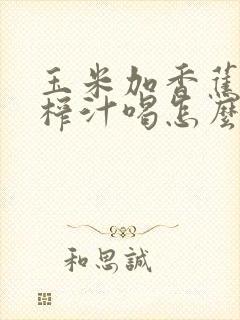 玉米加香蕉
榨汁喝怎麼
和思誠